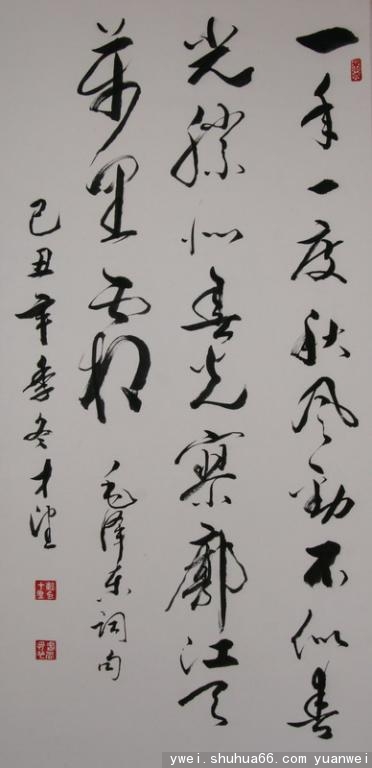 一年一度秋风劲不似春
光勝似春光寥廓江天
萬里霜
毛泽东词句
己丑年季冬
ywei.shuhua66.com yuanwei